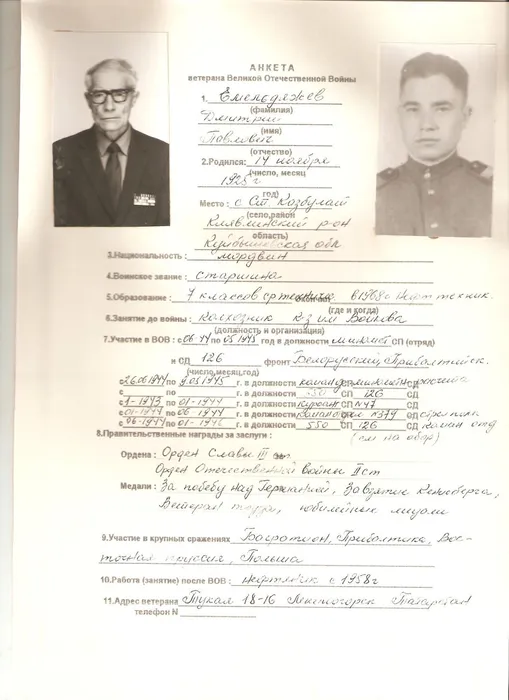 АНКЕТА
ветерана Великой Отечественной Войны
1. Емельдяжев
(фамилия)
Дмитрий
(имя)
Павлович
(отчество)
2.Родился: 14 ноября
(число, месяц
1925 г
год)
Место: с Ст. Казбулат
(село,район
Клявлинский р-он
область)
Куйбышевская обл
3.Национальность: мордвин
4.Воинское звание: старшина
5.Образование: 7 классов в 1968г Нефт техник.
(где и когда)
6.Занятие до войны: Колхозник к-з им Войкова
(должность и организация)
7.Участие в ВОВ: с 06-44 по 05 1945 год в должности миномет СП (отряд)
и СД 126 фронт Белорусский, Прибалтийск.
(число,месяц,год)
с 26.06 1944 по 9.05 1945 г. в должности команд. минометн расчета
с по г. в должности 550 СП 126 СД
с 1-1943 по 01-1944 г. в должности курсант СП №47 СД
с 01-1944 по 06 1944 г. в должности №379 СД стрелков
с 06-1944 по 01-194 г. в должности 550 СП 126 СД коман отд
8.Правительственные награды за заслуги: (см на обор)
Ордена: Орден Славы III
Орден Отечественной войны II ст
Медали: За победу над Германией, За взятие Кенисберга,
Ветеран труда, юбилейные медали
9.Участие в крупных сражениях Багратион, Прибалтика, Вос-
точная пруссия, Польша
10.Работа (занятие) после ВОВ: Нефтяник с 1958г
11.Адрес ветерана Тукая 18-16 Лениногорск Татарстан
телефон N